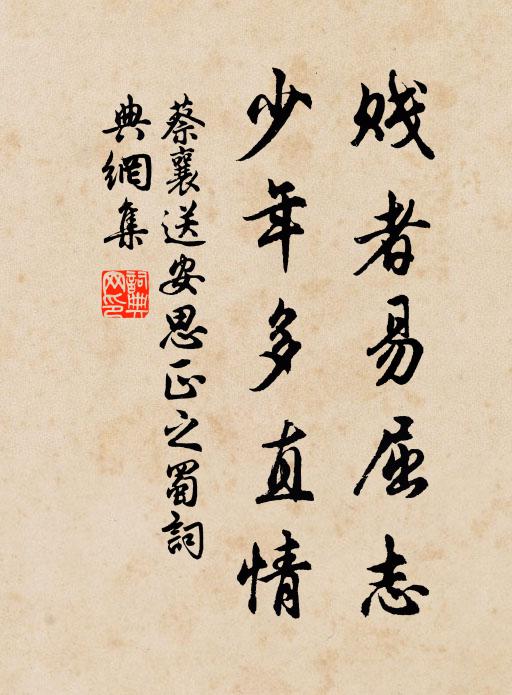 贱者易屈志
少年多直情
蔡襄送安思正之蜀詞
典網集
詞典
网印